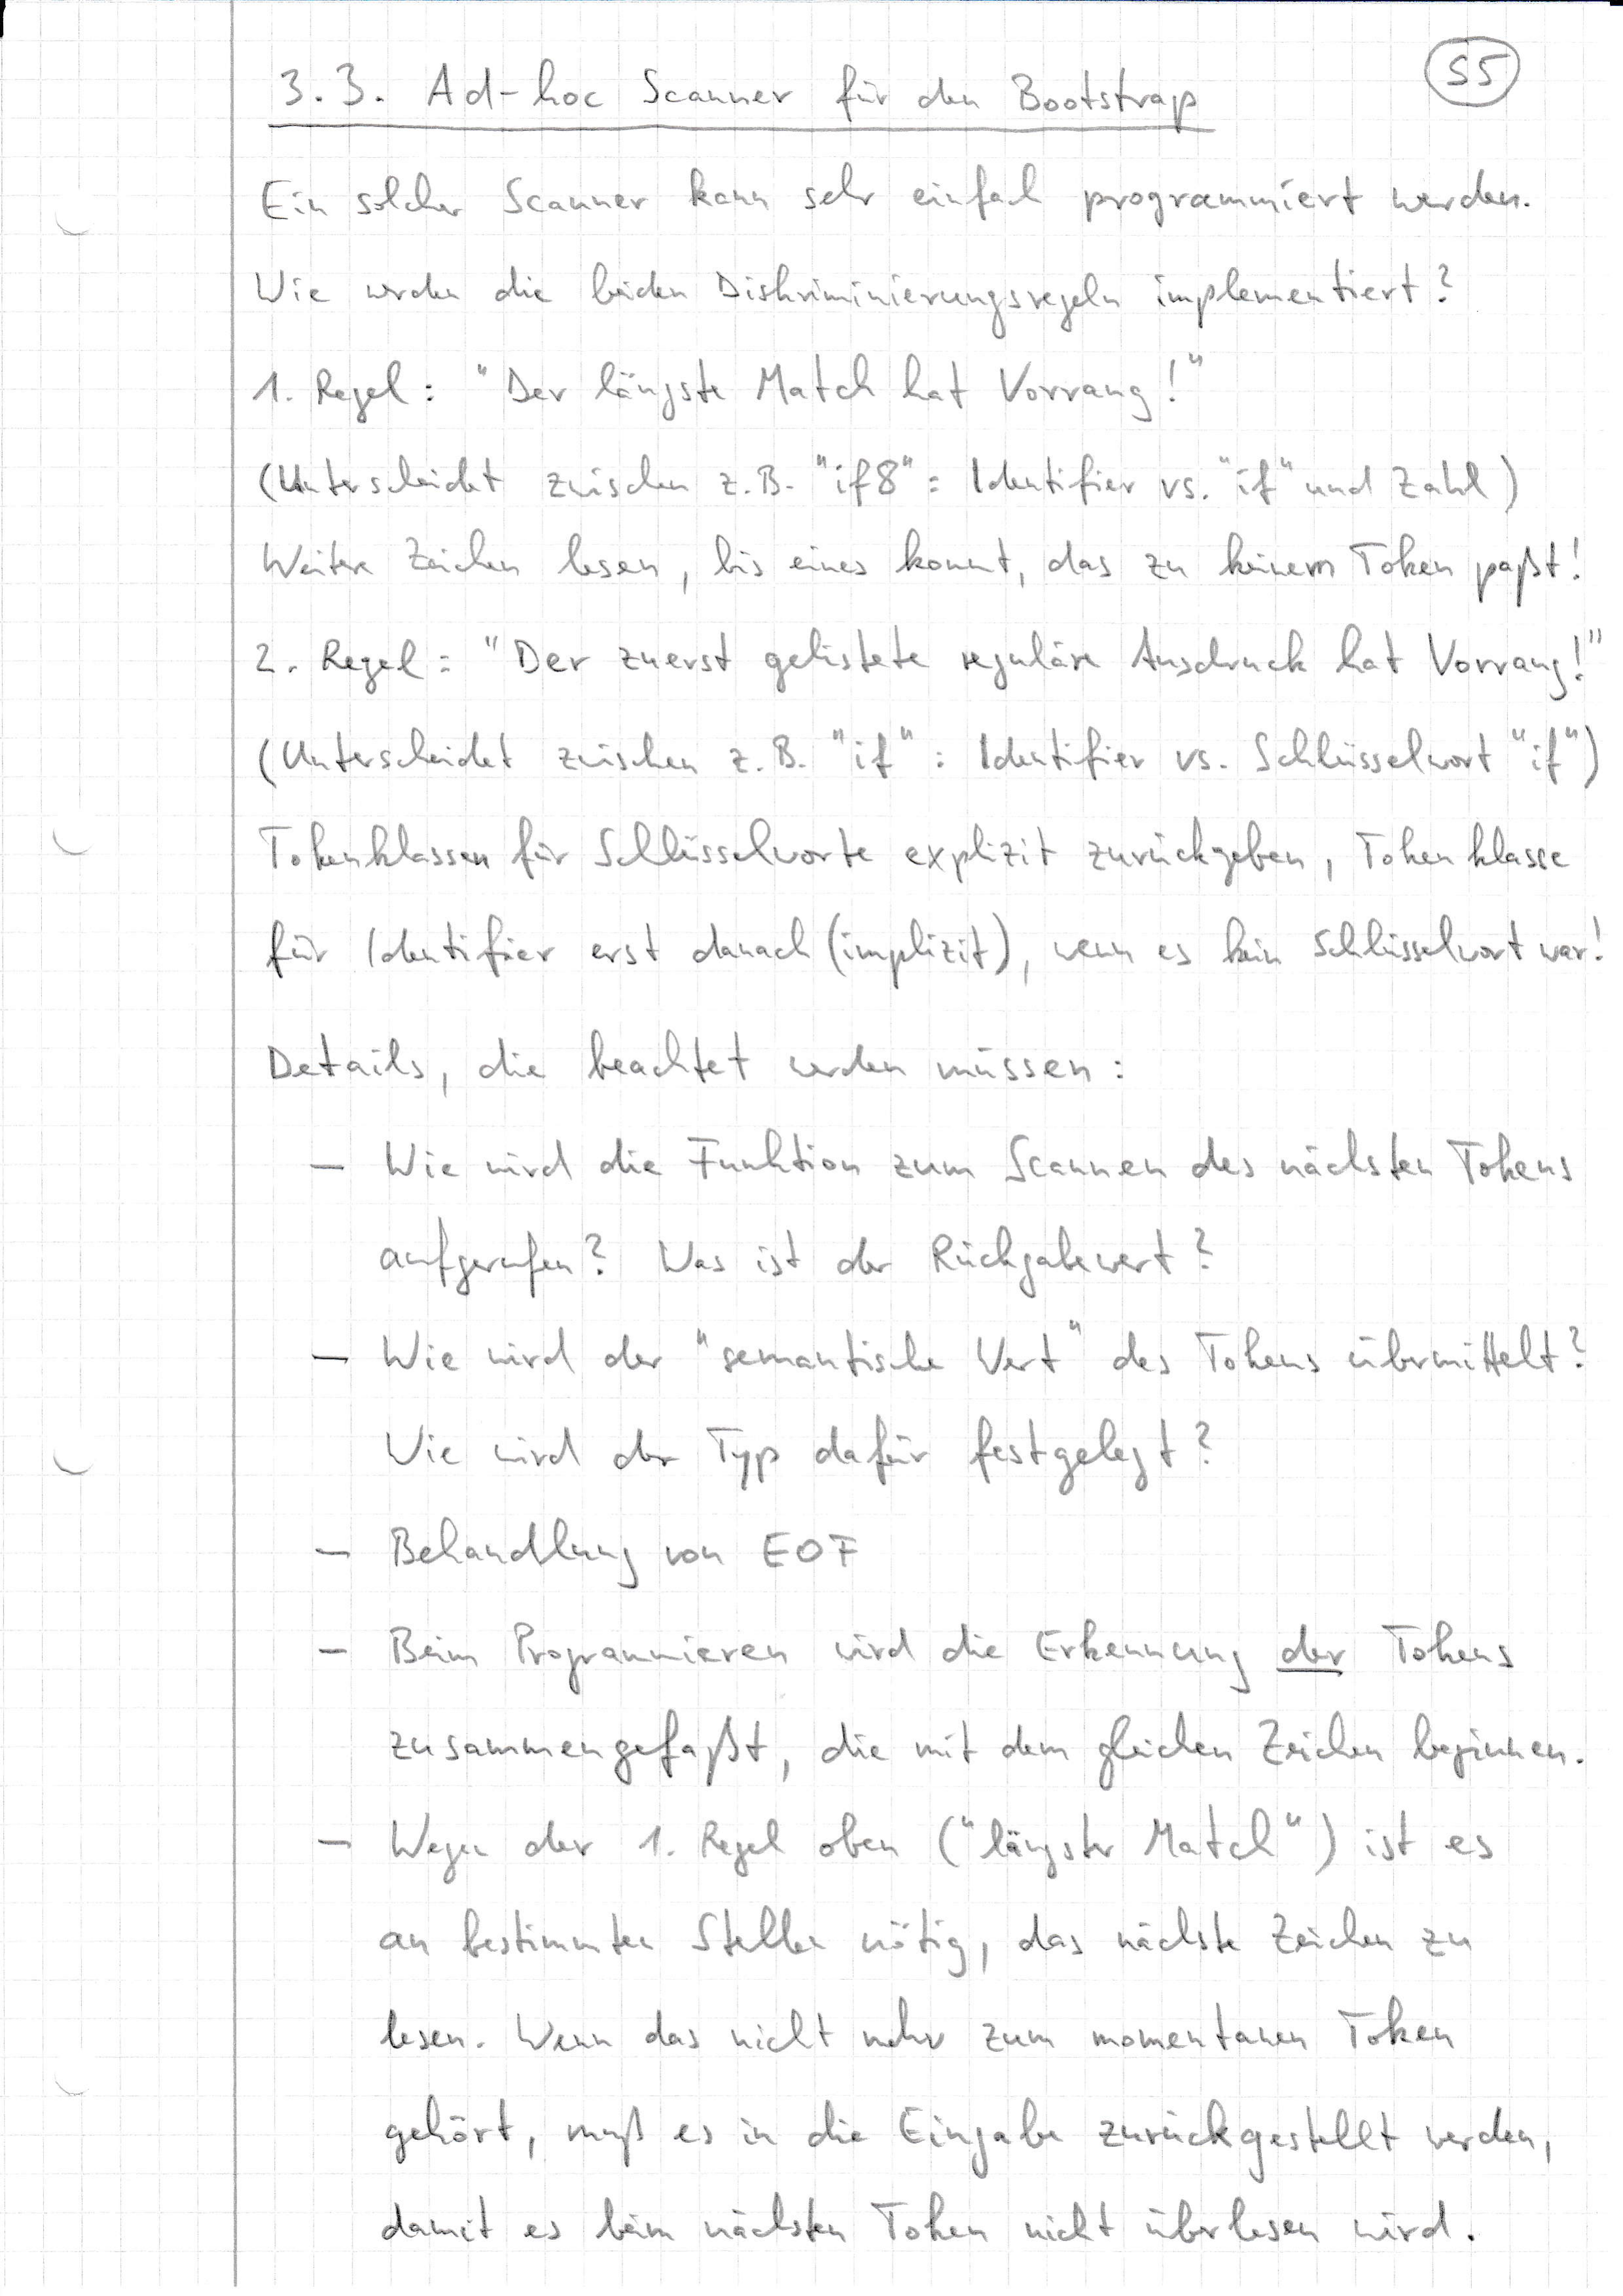 55
3.3. Ad-hoc Scanner für den Bootstrap
Ein solcher Scanner kann sehr einfach programmiert werden.
Wie werden die beiden Diskriminierungsregeln implementiert?
1. Regel: "Der längste Match hat Vorrang!"
(Unterscheidet zwischen z.B. "if8": Identifier vs. "if" und Zahl)
Weitere Zeichen lesen, bis eines kommt, das zu keinem Token paßt!
2. Regel: "Der zuerst gelistete reguläre Ausdruck hat Vorrang!"
(Unterscheidet zwischen z.B. "if": Identifier vs. Schlüsselwort "if")
Tokenklassen für Schlüsselworte explizit zurückgeben, Tokenklasse
für Identifier erst danach (implizit), wenn es kein Schlüsselwort war!
Details, die beachtet werden müssen:
- Wie wird die Funktion zum Scannen des nächsten Tokens
aufgerufen? Was ist der Rückgabewert?
- Wie wird der "semantische Wert" des Tokens übermittelt?
Wie wird der Typ dafür festgelegt?
- Behandlung von EOF
- Beim Programmieren wird die Erkennung der Tokens
zusammengefaßt, die mit dem gleichen Zeichen beginnen.
- Wegen der 1. Regel oben ("längster Match") ist es
an bestimmten Stellen nötig, das nächste Zeichen zu
lesen. Wenn das nicht mehr zum momentanen Token
gehört, muß es in die Eingabe zurückgestellt werden,
damit es beim nächsten Token nicht überlesen wird.